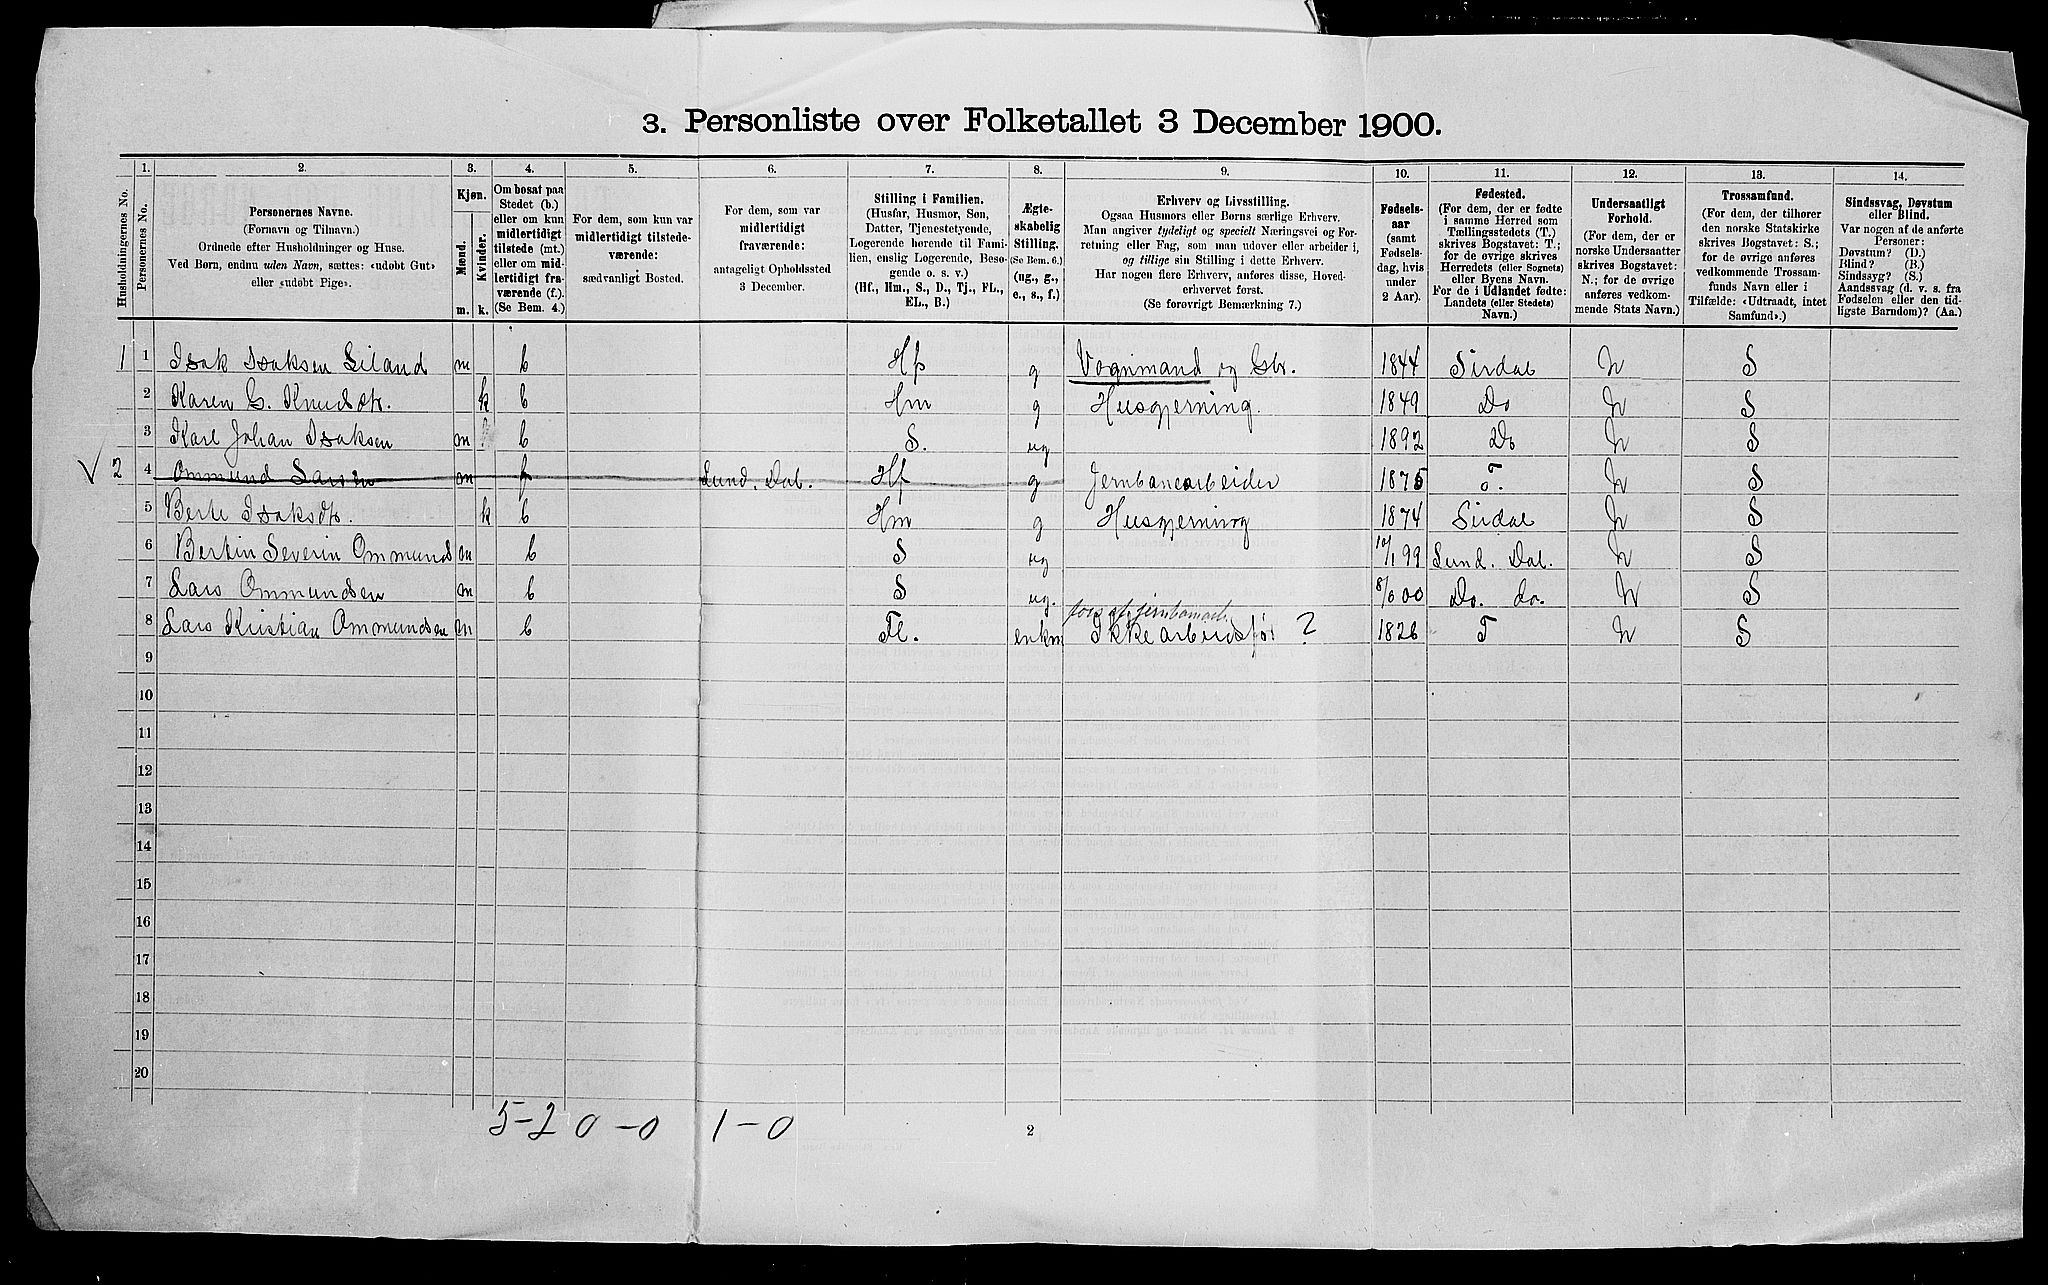 3. Personliste over Folketallet 3 December 1900.
Husholdningernes No.
1. Personernes No.
2. Personernes Navne. (Fornavn og Tilnavn.) Ordnede efter Husholdninger og Huse. Ved Børn, endnu uden Navn, sættes: «udøbt Gut» eller «udøbt Pige».
3. Kjøn. Mænd. m. Kvinder. k.
4. Om bosat paa Stedet (b.) eller om kun midlertidigt tilstede (mt.) eller om midlertidigt fraværende (f.). (Se Bem. 4.)
5. For dem, som kun var midlertidigt tilstedeværende: sædvanligt Bosted.
6. For dem, som var midlertidigt fraværende: antageligt Opholdssted 3 December.
7. Stilling i Familien. (Husfar, Husmor, Søn, Datter, Tjenestetyende, Logerende hørende til Familien, enslig Logerende, Besøgende o. s. v.) (Hf., Hm., S., D., Tj., FL., EL., B.)
8. Ægteskabelig Stilling. (Se Bem. 6.) (ug., g., e., s., f.)
9. Erhverv og Livsstilling. Ogsaa Husmors eller Børns særlige Erhverv. Man angiver tydeligt og specielt Næringsvei og Forretning eller Fag, som man udover eller arbeider i, og tillige sin Stilling i dette Erhverv. Har nogen flere Erhverv, anføres disse, Hovederhvervet først. (Se forøvrigt Bemærkning 7.)
10. Fødselsaar (samt Fødselsdag, hvis under 2 Aar).
11. Fødested. (For dem, der er fødte i samme Herred som Tællingsstedets (T.) skrives Bogstavet: T.; for de øvrige skrives Herredets (eller Sognets) eller Byens Navn. For de i Udlandet fødte: Landets (eller Stedets) Navn.)
12. Undersaatligt Forhold. (For dem, der er norske Undersaatter skrives Bogstavet: N.; for de øvrige anføres vedkommende Stats Navn.)
13. Trossamfund. (For dem, der tilhører den norske Statskirke skrives Bogstavet: S.; for de øvrige anføres vedkommende Trossamfunds Navn eller i Tilfælde: «Udtraadt, intet Samfund».)
14. Sindssvag, Døvstum eller Blind. Var nogen af de anførte Personer: Døvstum? (D.) Blind? (B.) Sindssyg? (S.) Aandssvag (d. v. s. fra Fødselen eller den tidligste Barndom)? (Aa.)
1 1 Isak Isaksen Liland m b Hf g Vognmand og Gbr. 1844 Sirdal N S
2 Karen G. Knudsdtr. k b Hm g Husgjerning. 1849 Do N S
3 Karl Johan Isaksen m b S. ug 1892 Do N S
√ 2 4 Ommund Larsen m f Lund. Dal. Hf g Jernbanearbeider 1875 T. N S
5 Berte Isaksdtr. k b Hm g Husgjerning 1874 Sirdal N S
6 Bertin Severin Ommunds m b S ug 10/1 99 Lund. Dal. N S
7 Lars Ommundsen m b S ug. 8/6 00 Do. do. N S
8 Lars Kristian Ommundsen m b FL. enkm Ikke arbeidsfør ? 1826 T N S
9
10
11
12
13
14
15
16
17
18
19
20
5-2 0-0 1-0
2